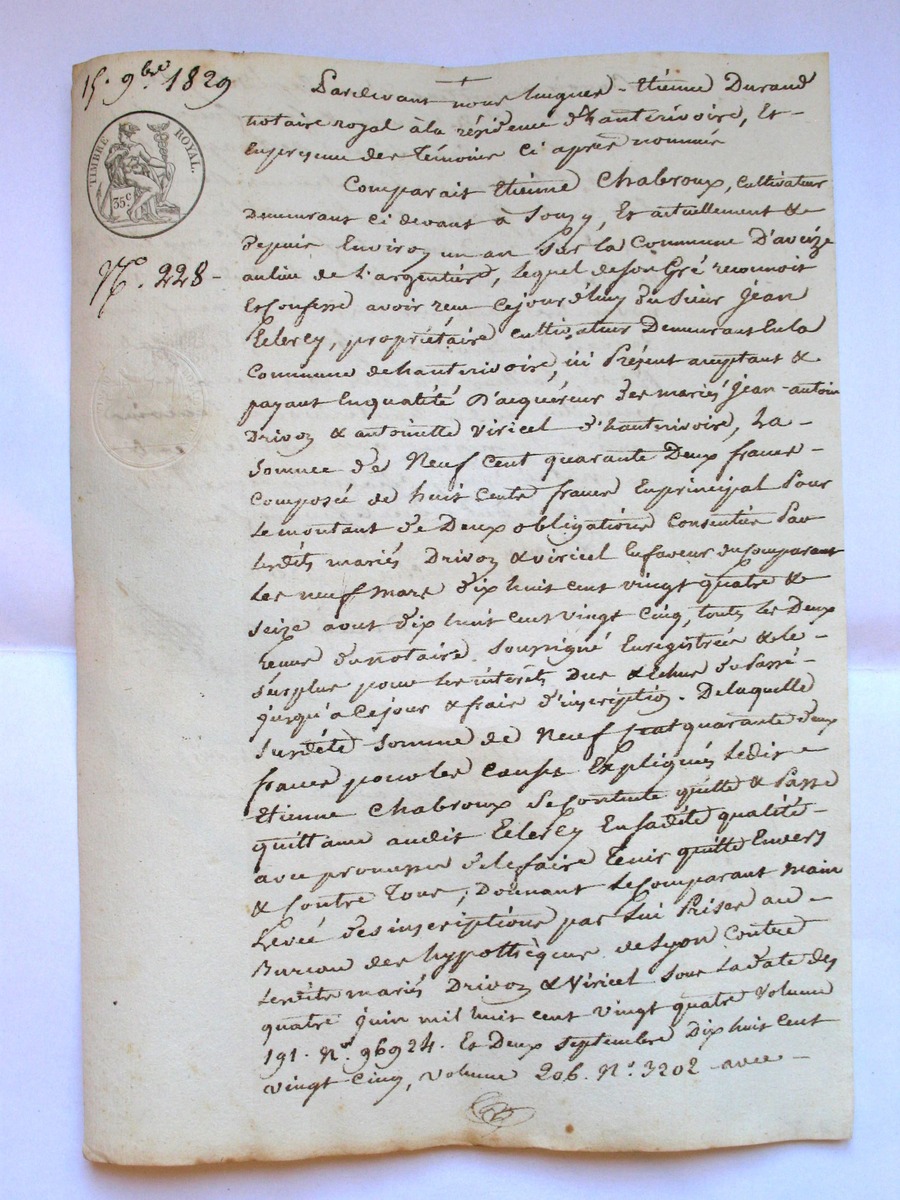 15. 9bre 1829
TIMBRE ROYAL.
35c.
No. 228 -
Pardevant nous hugues - Etienne Durand
notaire royal à la résidence d'hauterivoire, Et -
En presence des témoins ci après nommés
Comparait Etienne Chabroux, cultivateur
Demeurant ci devant à Souzy, Et actuellement &
depuis Environ un an sur la Commune D'aveize
au lieu de L'argentière, Lequel de son Gré reconnoit
Et confesse avoir reçu cejourd'huy du sieur Jean
propriétaire cultivateur Demeurant En la
Commune de hauterivoire, ici Présent acceptant &
payant En qualité D'acquéreur des mariés Jean - antoine
Drivoz & antoinette Viricel d'hauterivoire, La -
Somme de Neuf Cent quarante Deux francs -
Composée de huit Cents francs En principal Pour
Le montant de Deux obligations Consenties Par
Lesdits mariés Drivoz & viricel En faveur du Comparant
Les neuf mars dix huit cent vingt quatre &
Seize aout dix huit cent vingt Cinq, toutes les Deux
reçues du notaire Soussigné Enregistrées & le -
Surplus pour les intérêts Dus & échus du Passé -
jusqu'à Cejour & frais d'inscription. De laquelle
Susdite Somme de Neuf Cent quarante deux
francs pour les causes Expliquées Ledit -
Etienne Chabroux Se contente quitte & Passe
quittance audit En sadite qualité -
avec promesse de le faire Tenir quitte Envers
& Contre Tous; Donnant le Comparant main
Levée des inscriptions par Lui Prises au -
Bureau des hypothèques de Lyon Contre
Lesdits mariés Drivoz & Viricel Sous La date des
quatre juin mil huit cent vingt quatre Volume
191. No. 96924. Et Deux septembre Dix huit Cent
vingt Cinq, volume 206. No. 3202 - avec -